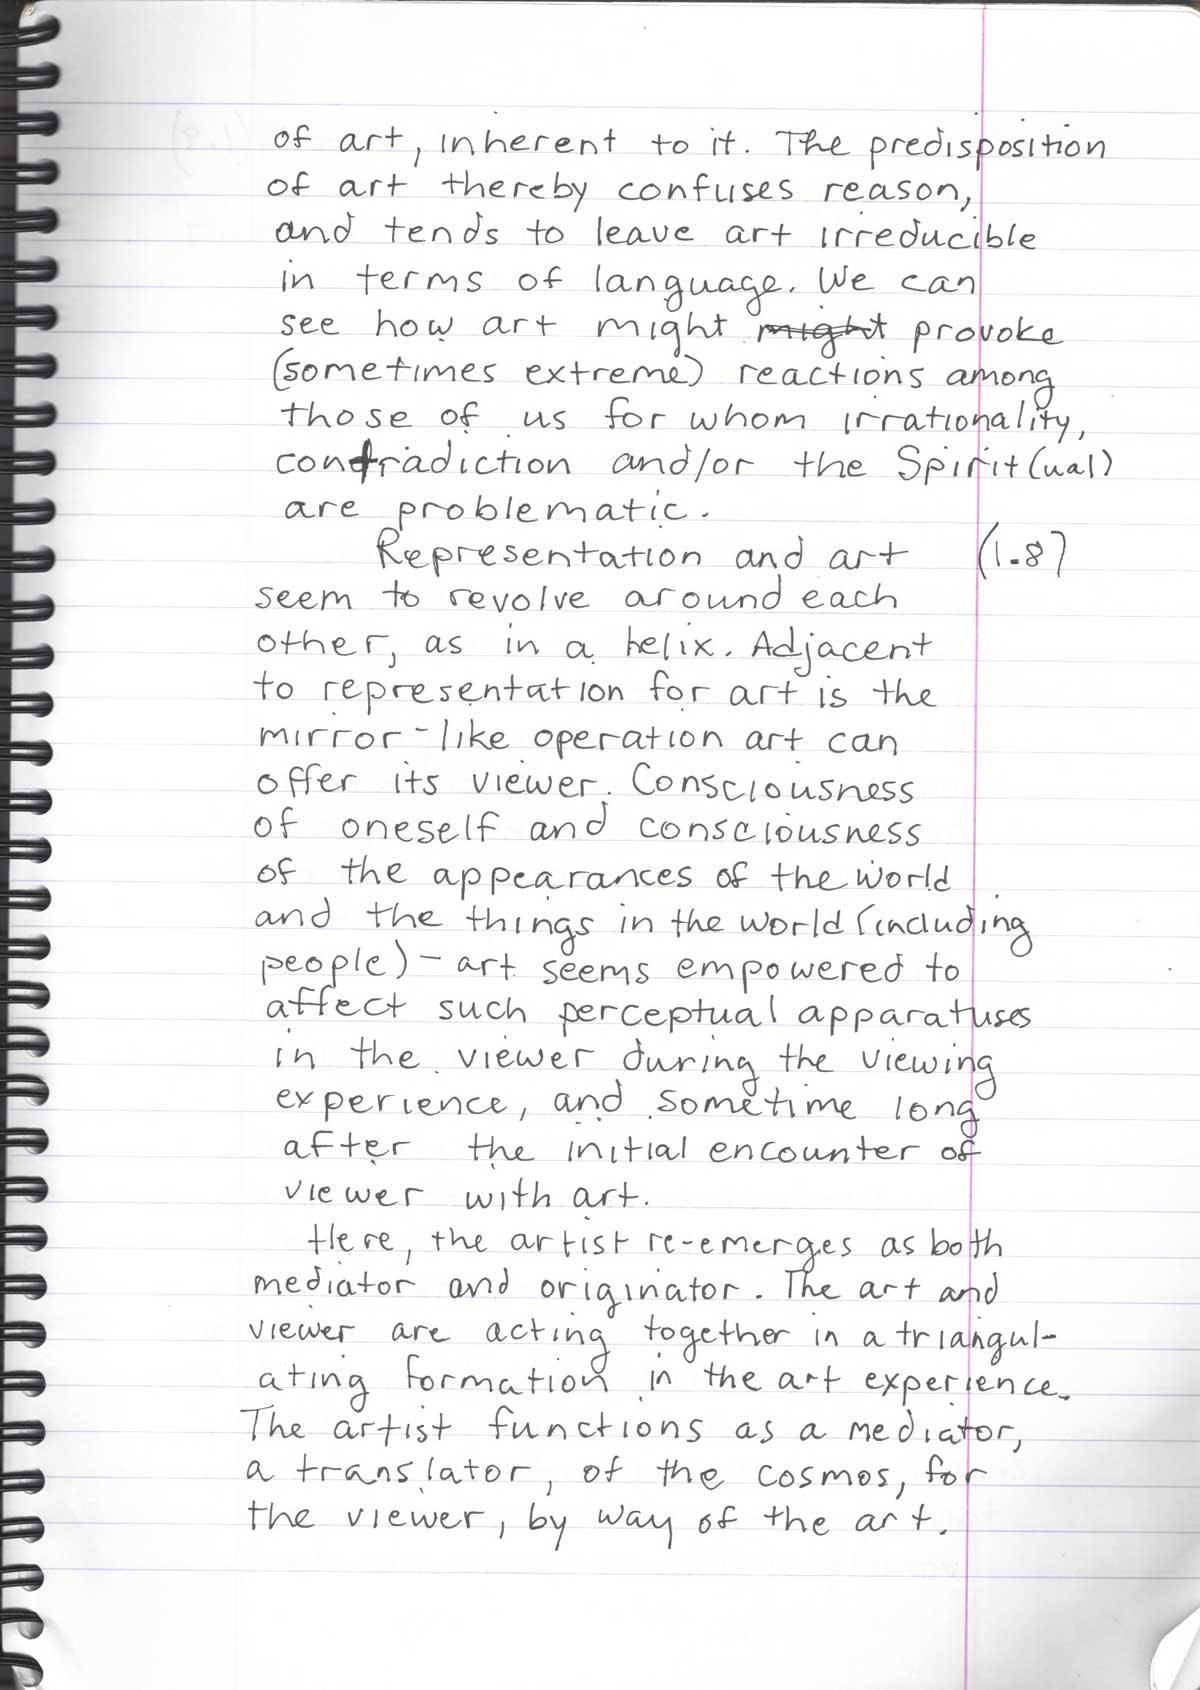 of art, inherent to it. The predisposition
of art thereby confuses reason,
and tends to leave art irreducible
in terms of language. We can
see how art might might provoke
(sometimes extreme) reactions among
those of us for whom irrationality,
contradiction and/or the Spirit(ual)
are problematic.
Representation and art (1.8)
seem to revolve around each
other, as in a helix. Adjacent
to representation for art is the
mirror-like operation art can
offer its viewer. Consciousness
of oneself and consciousness
of the appearances of the world
and the things in the world (including
people) - art seems empowered to
affect such perceptual apparatuses
in the viewer during the viewing
experience, and sometime long
after the initial encounter of
viewer with art.
Here, the artist re-emerges as both
mediator and originator. The art and
viewer are acting together in a triangul-
ating formation in the art experience.
The artist functions as a mediator,
a translator, of the cosmos, for
the viewer, by way of the art.